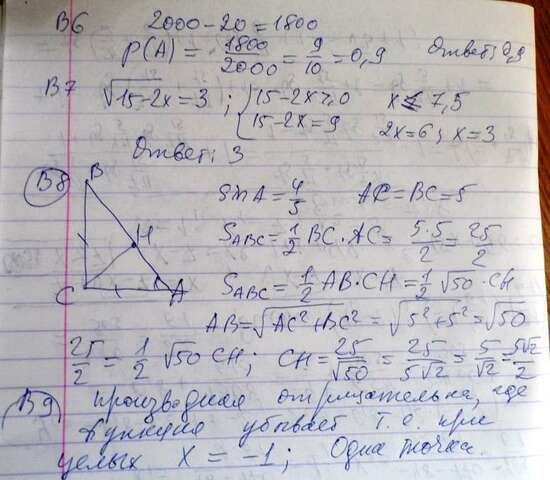 В6 2000-20=1800
P(A) = 1800/2000 = 9/10 = 0,9 Ответ: 0,9
В7 √15-2x = 3 ; { 15-2x ≥ 0 x ≤ 7,5
15-2x = 9 2x=6; x=3
Ответ: 3
В8 B sin A = 4/5 AC = BC = 5
H S ABC = 1/2 BC · AC = 5·5/2 = 25/2
C A S ABC = 1/2 AB · CH = 1/2 √50 · CH
AB = √AC²+BC² = √5²+5² = √50
25/2 = 1/2 √50 CH; CH = 25/√50 = 25/5√2 = 5/√2 = 5√2/2
В9 производная отрицательна, где
функция убывает т.е. при
целых x = -1; Одна точка.